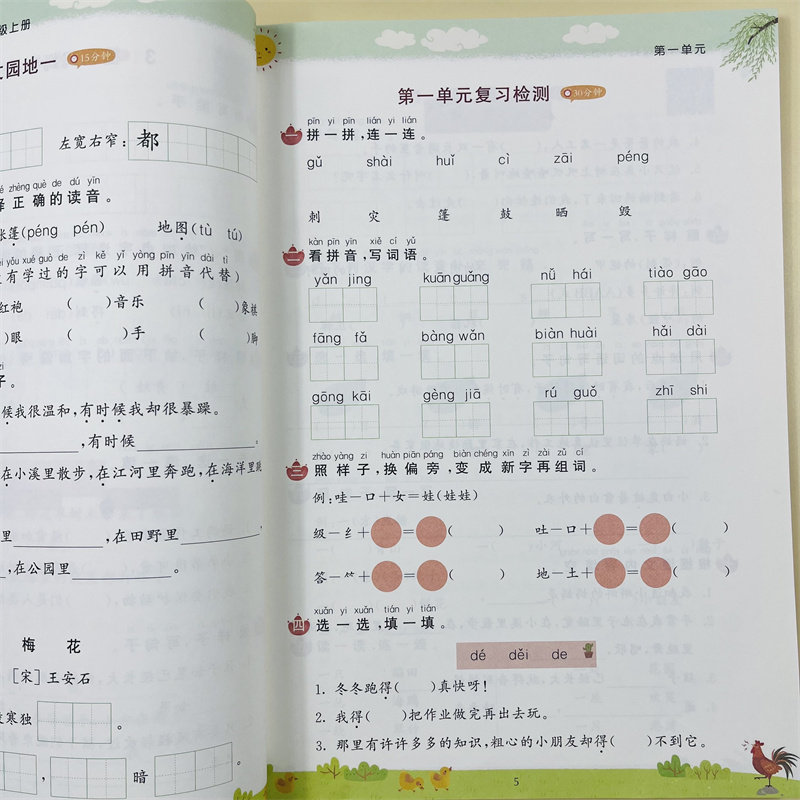 级上册
文园地一 15分钟
左宽右窄: 都
择正确的读音。
帐篷(péng pén) 地图(tù tú)
有学过的字可以用拼音代替)
红袍 ( )音乐 ( )象棋
)眼 ( )手 ( )脚
子。
候我很温和,有时候我却很暴躁。
,有时候
在小溪里散步,在江河里奔跑,在海洋里跑
里 ,在田野里
,在公园里 。
梅 花
[宋]王安石
寒独 。
, 暗 。
第一单元
第一单元复习检测 30分钟
pīn yi pīn lián yi lián
一 拼一拼,连一连。
gǔ shài huǐ cì zāi péng
刺 灾 篷 鼓 晒 毁
kàn pīn yīn xiě cí yǔ
二 看拼音,写词语。
yǎn jing kuānguǎng nǚ hái tiào gāo
fāng fǎ bàng wǎn biàn huài hǎi dài
gōng kāi gèng jiā rú guǒ zhī shi
zhào yàng zi huàn piān páng biàn chéng xīn zì zài zǔ cí
三 照样子,换偏旁,变成新字再组词。
例:哇－口＋女＝娃(娃娃)
级－纟＋ ＝ ( ) 吐－口＋ ＝ ( )
答－⺮＋ ＝ ( ) 地－土＋ ＝ ( )
xuǎn yi xuǎn tián yi tián
四 选一选,填一填。
dé děi de
1. 冬冬跑得( )真快呀!
2. 我得( )把作业做完再出去玩。
3. 那里有许许多多的知识,粗心的小朋友却得( )不到它。
5